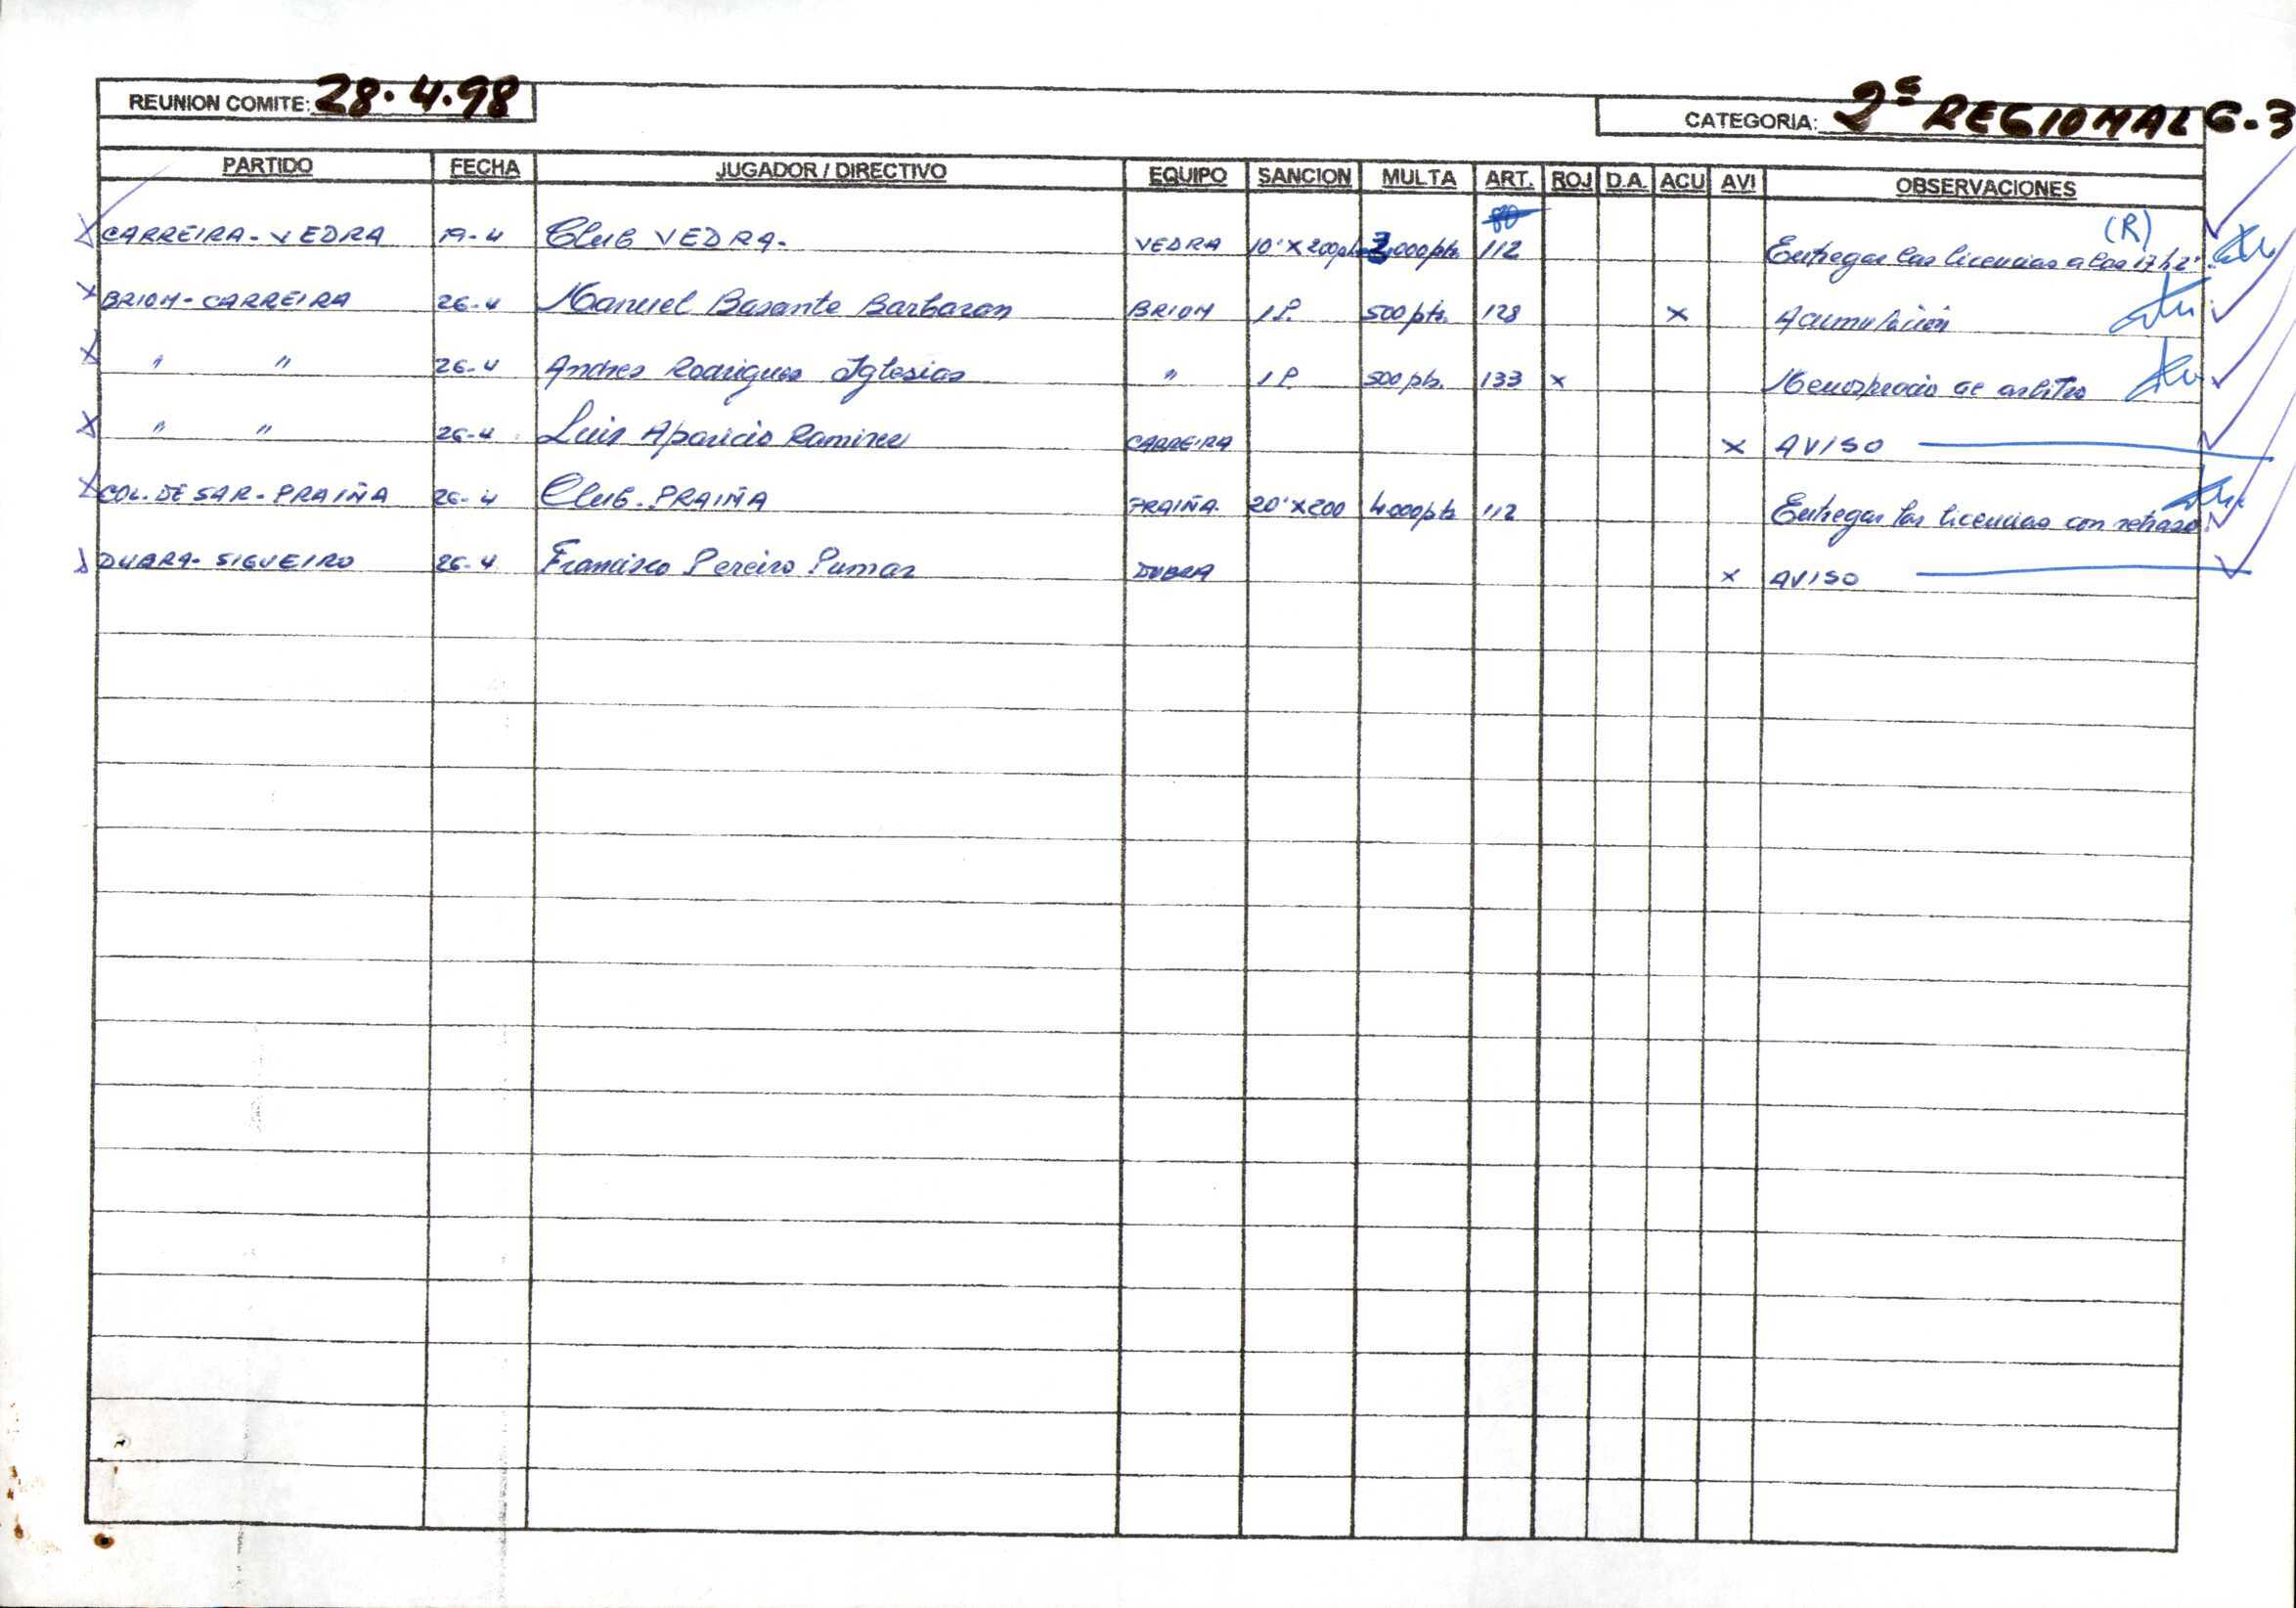 REUNION COMITE: 28.4.98
CATEGORIA: 2ª REGIONAL G-3
PARTIDO FECHA JUGADOR / DIRECTIVO EQUIPO SANCION MULTA ART. ROJ D.A. ACU AVI OBSERVACIONES
80 (R)
CARREIRA - VEDRA 19-4 Club VEDRA. VEDRA 10'X200pts 2,000pts. 112 Entregar las licencias a las 17 h 2'.
BRION - CARREIRA 26-4 Manuel Basante Barbazan BRION 1 P. 500 pts. 128 x Acumulación
" " 26-4 Andres Rodriguez Iglesias " 1 P. 500 pts. 133 x Menosprecio de arbitro
" " 26-4 Luis Aparicio Ramirez CARREIRA x AVISO
COL. DE SAR - PRAIÑA 26-4 Club. PRAIÑA PRAIÑA 20'X200 4.000pts 112 Entregar las licencias con retraso.
DUBRA - SIGUEIRO 26-4 Francisco Pereiro Pumar DUBRA x AVISO